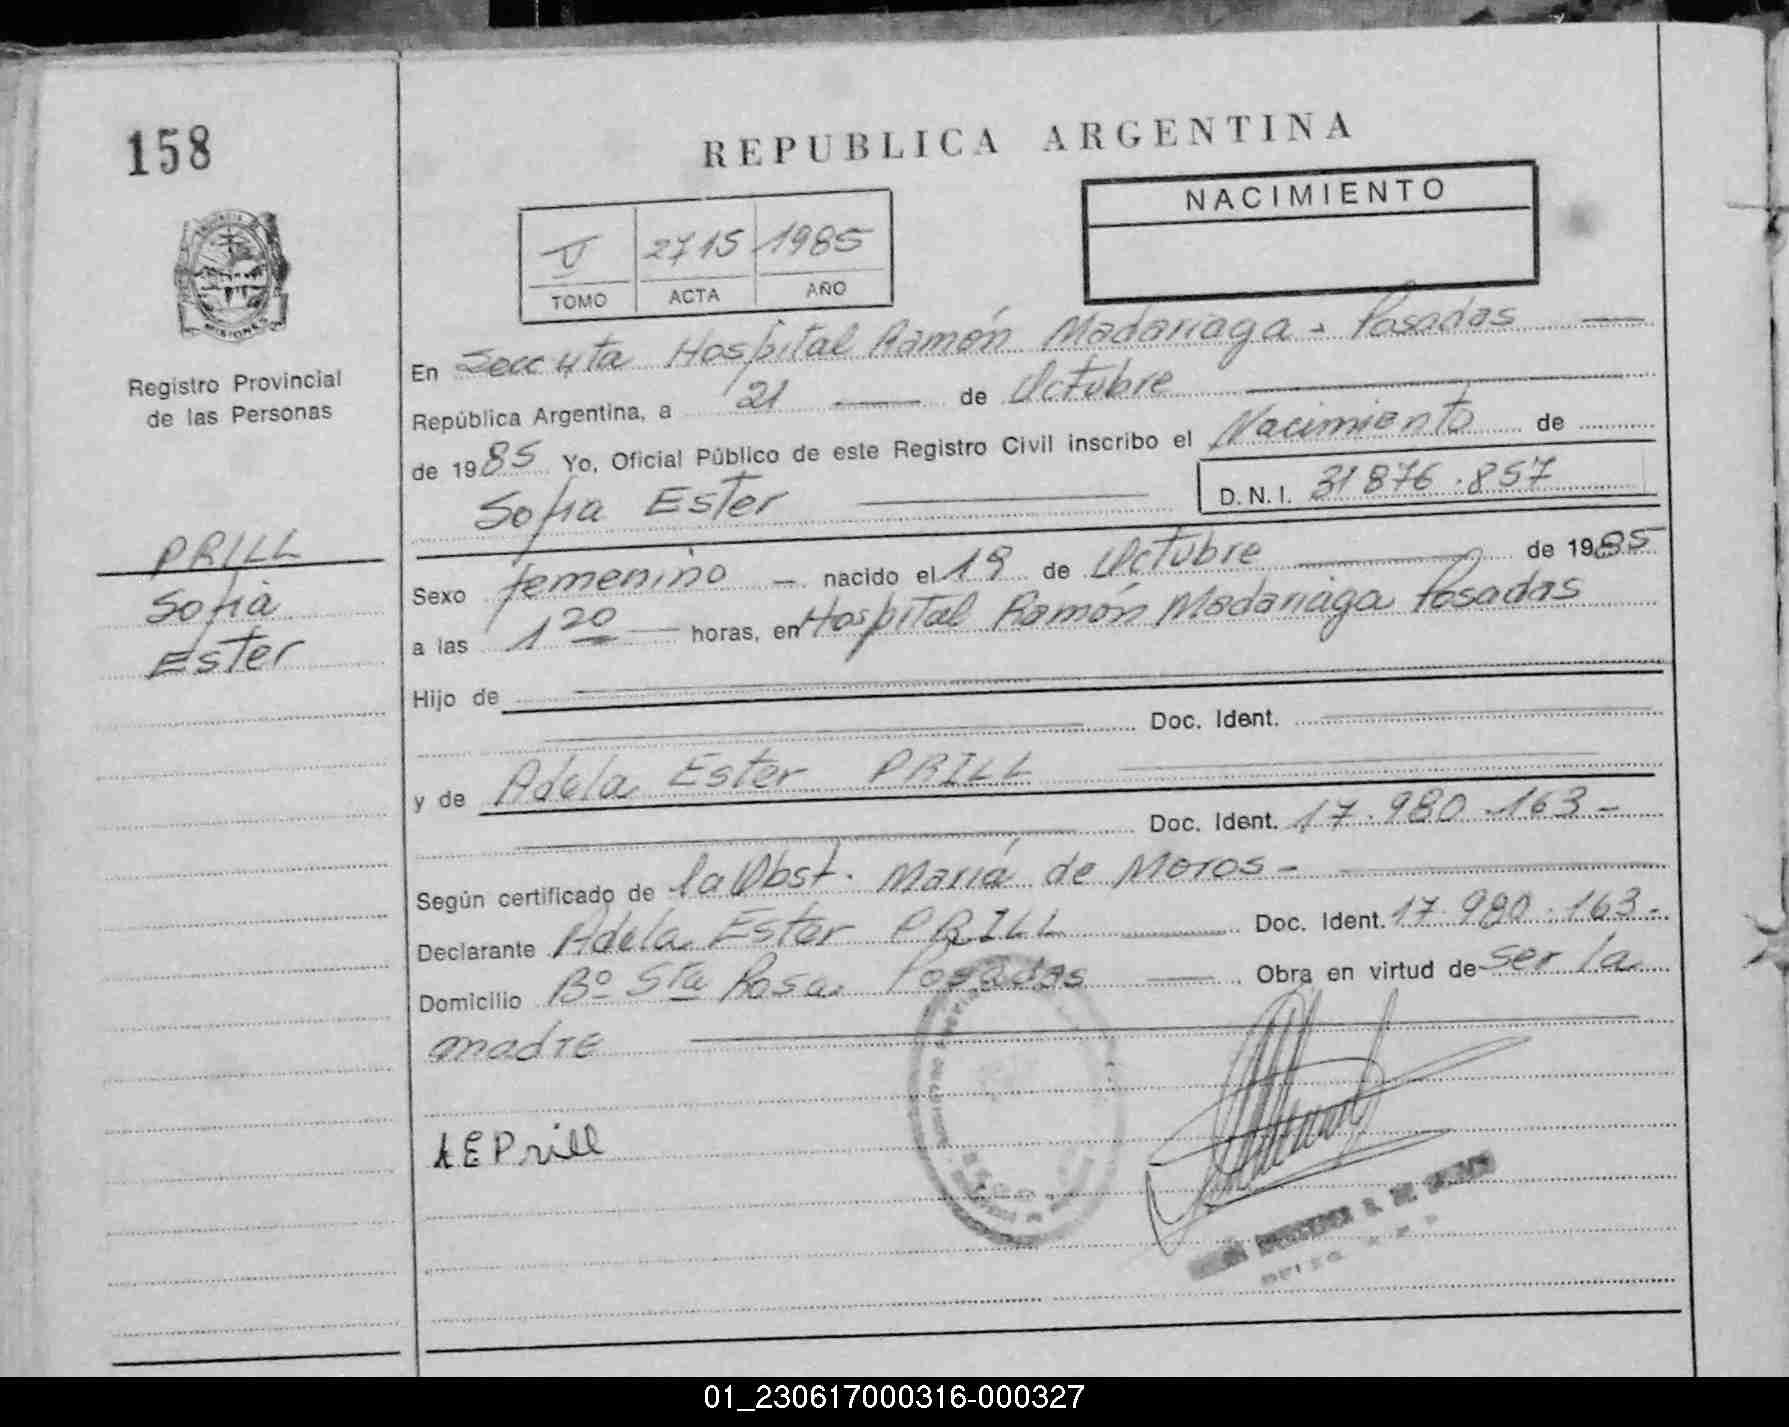 158
REPUBLICA ARGENTINA
NACIMIENTO
V 2715 1985
TOMO ACTA AÑO
MISIONES
Registro Provincial
de las Personas
En Secc yta Hospital Ramón Madariaga - Posadas
República Argentina, a 21 de Octubre
de 1985 Yo, Oficial Público de este Registro Civil inscribo el Nacimiento de
Sofia Ester D.N.I. 31876.857
PRILL
Sofia
Ester
Sexo femenino - nacido el 19 de Octubre de 1985
a las 1 20 horas, en Hospital Ramón Madariaga Posadas
Hijo de
Doc. Ident.
y de Adela Ester PRILL
Doc. Ident. 17.980.163-
Según certificado de la Obst. María de Moros-
Declarante Adela Ester PRILL Doc. Ident. 17.980.163-
Domicilio Bº Sta Rosa Posadas Obra en virtud de ser la
madre
A E Prill
01_230617000316-000327